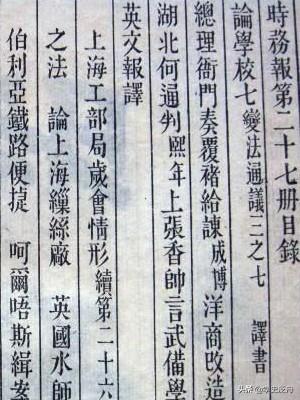 時務報第二十七册目錄
論學校七變法通議三之七 譯書
總理衙門奏覆褚給諫成博洋商改造
湖北何通判熙年上張香帥言武備學
英文報譯
上海工部局歲會情形續第二十六
之法 論上海繅絲廠 英國水師
伯利亞鐵路便捷 呵爾唔斯緝案
头条 @学史泛舟